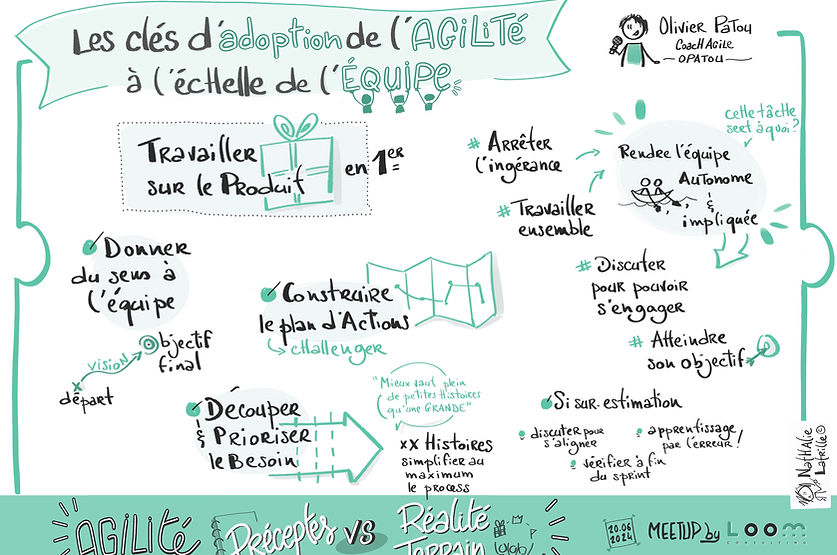 Les clés d'adoption de l'AGiLiTÉ
à l'échelle de l'ÉQUIPE
Olivier Patou
Coach Agile
OPATOU
Travailler
sur le Produit
en 1er
# Arrêter
l'ingérance
# Travailler
ensemble
cette tâche
sert à quoi ?
Rendre l'équipe
Autonome
&
impliquée
# Discuter
pour pouvoir
s'engager
# Atteindre
son objectif
Donner
du sens à
l'équipe
vision
objectif
final
x
départ
Construire
le plan d'Actions
challenger
Découper
& Prioriser
le Besoin
"Mieux vaut plein
de petites Histoires
qu'une GRANDE"
xx Histoires
simplifier au
maximum
le process
Si sur-estimation
discuter pour
s'aligner
apprentissage
par l'erreur !
vérifier à fin
du sprint
Nathalie
Latrille©
AGiLiTÉ
Préceptes
VS
Réalité
Terrain
20.06
2024
MEETUP by Loom
CONSULTING